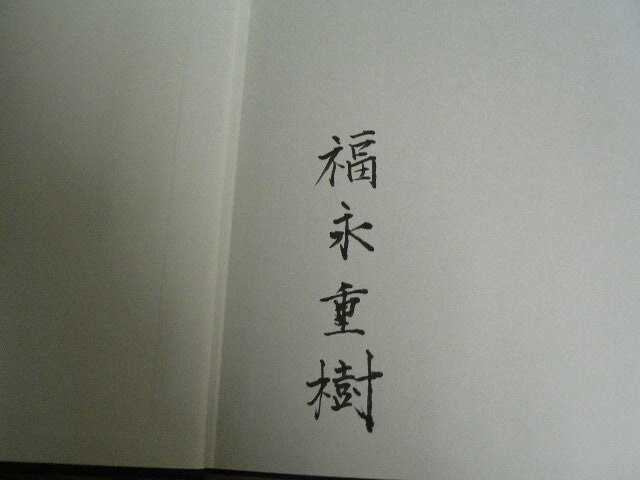 福永重樹